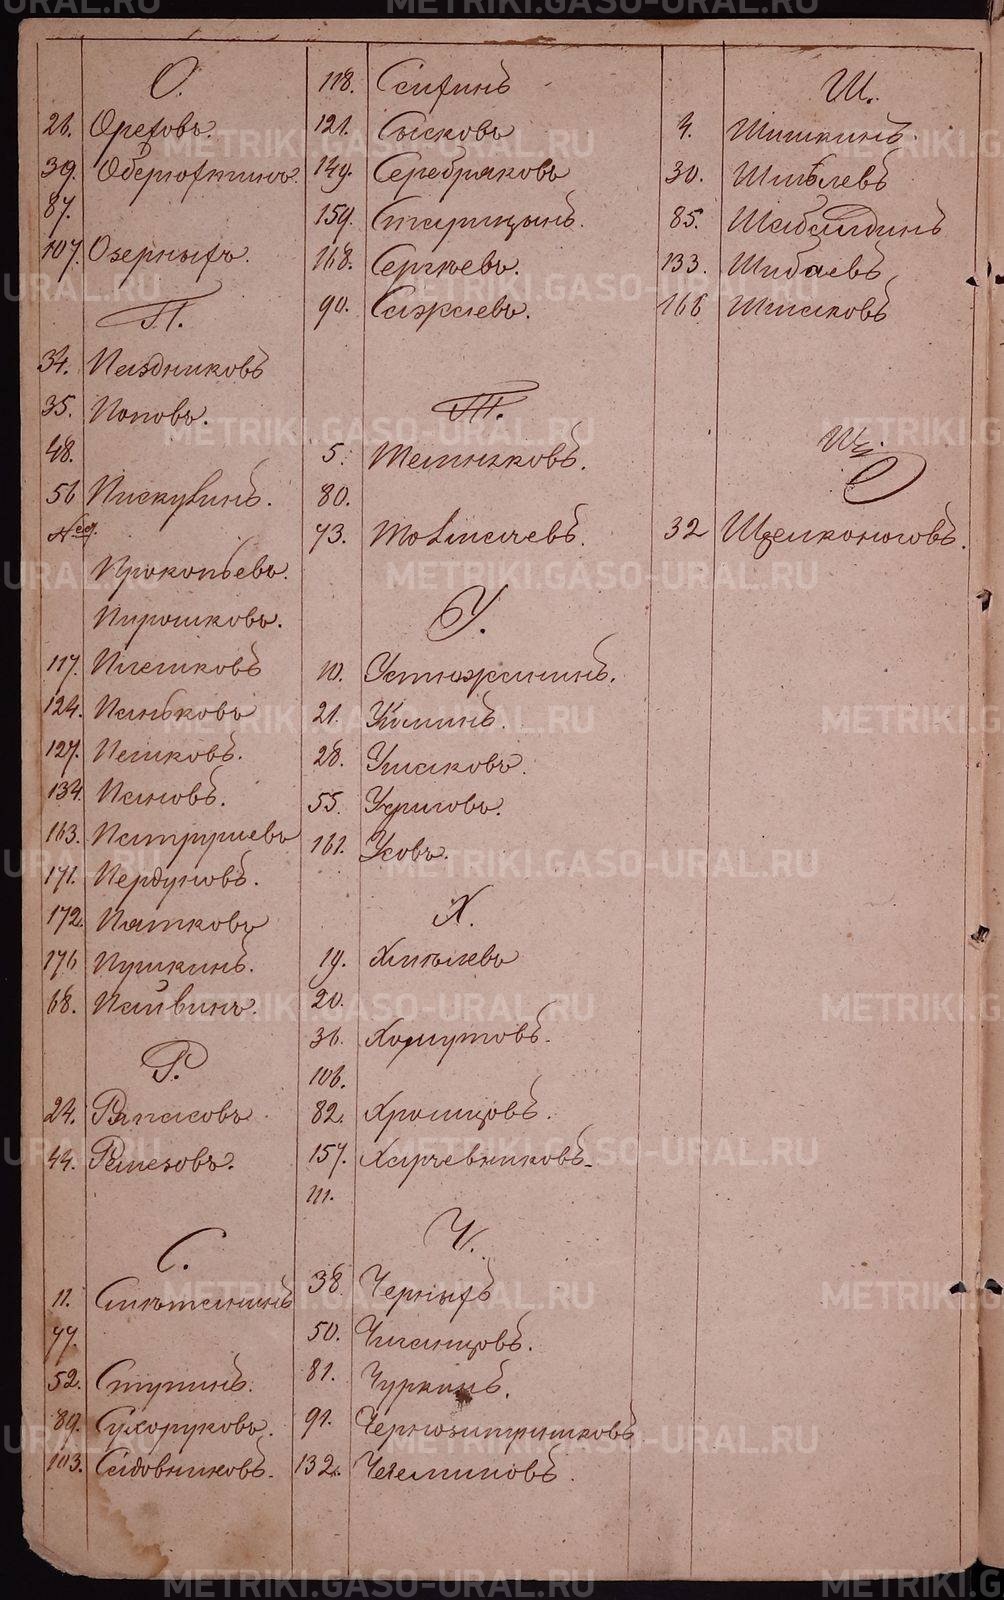 О.
26. Ореховъ.
39. Оберюхтинъ.
87.
107. Озерныхъ.
П.
34. Паздниковъ
35. Поповъ.
48.
56 Пискулинъ.
Нед.
Прокопьевъ.
Пирожковъ.
117. Плешковъ
124. Паньковъ
127. Пешковъ.
134. Пановъ.
163. Патрушевъ
171. Пердуновъ.
172. Пятковъ
176 Пушкинъ.
68. Пайвинъ.
Р.
24. Ряпасовъ.
44. Ремезовъ.
С.
11. Смѣтанинъ
77.
52. Ступинъ.
89. Сухоруковъ.
103. Садовниковъ.
118. Ситинъ
121. Сысковъ
149. Серебряковъ
159. Старицынъ.
168. Сергѣевъ.
90. Сажаевъ.
Т.
5. Темняковъ.
80.
73. Толмачевъ.
У.
10. Устюжанинъ.
21. Ушминъ.
28. Ушаковъ.
55.
161. Усовъ.
Х.
19. Хмѣлевъ
20.
36. Хомутовъ.
106.
82. Храмцовъ.
157. Харчевниковъ.
111.
Ч.
38. Черныхъ
50.
81. Чуркинъ.
91.
132.
Ш.
4. Шишкинъ.
30. Шмѣлевъ
85. Шабалдинъ
133. Шибаевъ
166 Шмаковъ
Щ.
32 Щелконоговъ.
METRIKI.GASO-URAL.RU